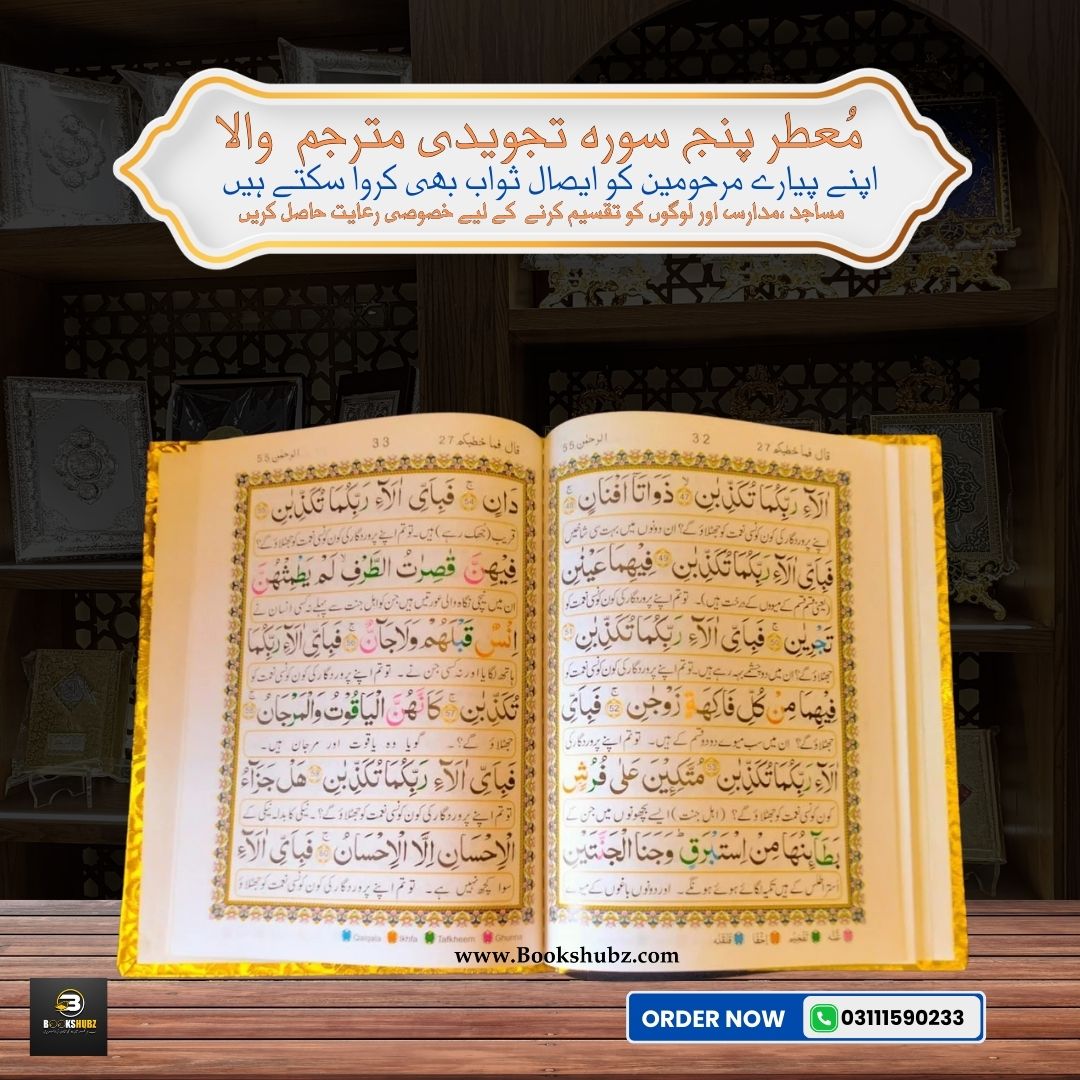 مُعطر پنج سورہ تجویدی مترجم والا
اپنے پیارے مرحومین کو ایصال ثواب بھی کروا سکتے ہیں
مساجد ،مدارس اور لوگوں کو تقسیم کرنے کے لیے خصوصی رعایت حاصل کریں
قال فما خطبكم 27 32 الرحمٰن 55
اٰلَآءِ رَبِّكُمَا تُكَذِّبٰنِ ۙ﴿47﴾ ذَوَاتَاۤ اَفْنَانٍ ۚ﴿48﴾
اپنے پروردگار کی کون کونسی نعمت کو جھٹلاؤ گے؟ ان دونوں میں بہت سی شاخیں
فَبِاَىِّ اٰلَآءِ رَبِّكُمَا تُكَذِّبٰنِ ﴿49﴾ فِيْهِمَا عَيْنٰنِ
(یعنی قسم قسم کے میووں کے درخت ہیں)۔ تو تم اپنے پروردگار کی کون کونسی نعمت کو
تَجْرِيٰنِ ۚ﴿50﴾ فَبِاَىِّ اٰلَآءِ رَبِّكُمَا تُكَذِّبٰنِ ﴿51﴾
جھٹلاؤ گے؟ ان میں دو چشمے بہہ رہے ہیں۔ تو تم اپنے پروردگار کی کون کونسی نعمت کو
فِيْهِمَا مِنْ كُلِّ فَاكِهَةٍ زَوْجٰنِ ۚ﴿52﴾ فَبِاَىِّ
جھٹلاؤ گے؟ ان میں سب میوے دو دو قسم کے ہیں۔ تو تم اپنے پروردگار کی
اٰلَآءِ رَبِّكُمَا تُكَذِّبٰنِ ﴿53﴾ مُتَّكِـِٕيْنَ عَلٰى فُرُشٍۭ
کون کونسی نعمت کو جھٹلاؤ گے؟ (اہل جنت) ایسے بچھونوں میں جن کے
بَطَآىِٕنُهَا مِنْ اِسْتَبْرَقٍ ؕ وَجَنَا الْجَنَّتَيْنِ
استر اطلس کے ہیں تکیہ لگائے ہوئے ہونگے۔ اور دونوں باغوں کے میوے
غنّه تَفخِيم اِخفَا قَلقَله
قال فما خطبكم 27 33 الرحمٰن 55
دَانٍ ۚ﴿54﴾ فَبِاَىِّ اٰلَآءِ رَبِّكُمَا تُكَذِّبٰنِ ﴿55﴾
قریب (جھک رہے) ہیں۔ تو تم اپنے پروردگار کی کون کونسی نعمت کو جھٹلاؤ گے؟
فِيْهِنَّ قٰصِرٰتُ الطَّرْفِ ۙ لَمْ يَطْمِثْهُنَّ
ان میں نیچی نگاہ والی عورتیں ہیں جن کو اہل جنت سے پہلے نہ کسی انسان نے
اِنْسٌ قَبْلَهُمْ وَلَا جَآنٌّ ۚ﴿56﴾ فَبِاَىِّ اٰلَآءِ رَبِّكُمَا
ہاتھ لگایا اور نہ کسی جن نے۔ تو تم اپنے پروردگار کی کون کونسی نعمت کو
تُكَذِّبٰنِ ۚ﴿57﴾ كَاَنَّهُنَّ الْيَاقُوْتُ وَالْمَرْجَانُ ۚ﴿58﴾
جھٹلاؤ گے؟۔ گویا وہ یاقوت اور مرجان ہیں۔
فَبِاَىِّ اٰلَآءِ رَبِّكُمَا تُكَذِّبٰنِ ﴿59﴾ هَلْ جَزَآءُ
تو تم اپنے پروردگار کی کون کونسی نعمت کو جھٹلاؤ گے؟۔ نیکی کا بدلہ نیکی کے
الْاِحْسَانِ اِلَّا الْاِحْسَانُ ۚ﴿60﴾ فَبِاَىِّ اٰلَآءِ
سوا کچھ نہیں ہے۔ تو تم اپنے پروردگار کی کون کونسی نعمت کو جھٹلاؤ
Qalqala Ikhfa Tafkheem Ghunna
www.Bookshubz.com
BOOKSHUBZ
ORDER NOW 03111590233